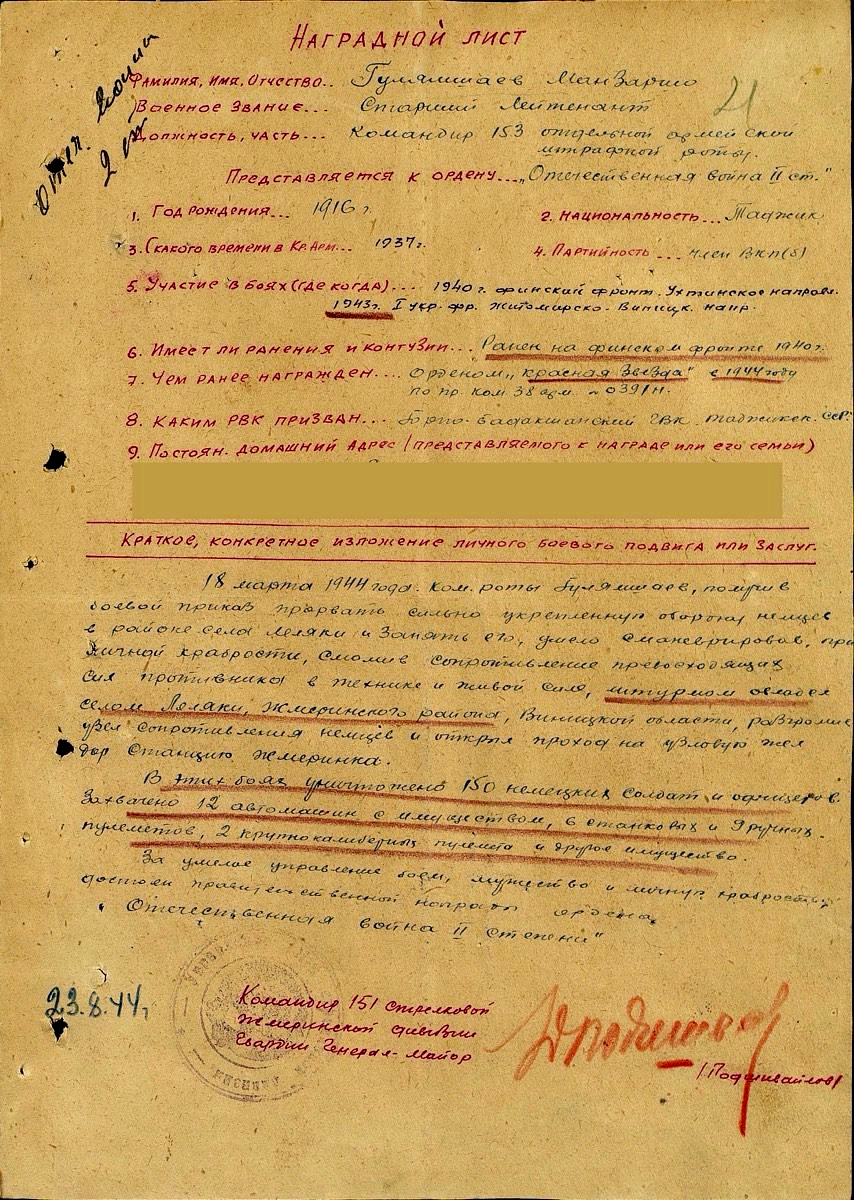 Наградной лист
Фамилия, Имя, Отчество.. Гулямшаев МанЗаршо
21
Военное звание... Старший Лейтенант
Должность, часть... Командир 153 отдельной армейской
штрафной роты.
Отеч. война
2 ст
Представляется к ордену... „Отечественная война II ст."
1. Год рождения... 1916 г.
2. Национальность... Таджик
3. Скакого времени в Кр. Арм... 1937г.
4. Партийность.... член ВКП(б)
5. Участие в боях (где когда).... 1940 г. финский фронт. Ухтинское направл.
1943г. I укр. фр. Житомирско-Виницк. напр.
6. Имеет ли ранения и контузии... Ранен на финском фронте 1940г.
7. Чем ранее награжден.... Орденом „красная Звезда" с 1944 году
по пр. ком 38 арм. № 0391н.
8. Каким РВК призван... Горно-Бадакшанский ГВК Таджикск. ССР.
9. Постоян. домашний адрес (представляемого к награде или его семьи)
Краткое, конкретное изложение личного боевого подвига или заслуг.
18 марта 1944 года. ком. роты Гулямшаев, получив
боевой приказ прорвать сильно укрепленную оборону немцев
в районе села Леляки и Занять его, умело сманеврировав, при
личной храбрости, сломив сопротивление превосходящих
сил противника в технике и живой силе, штурмом овладел
селом Леляки, Жмеринского района, Виницкой области, разгромив
узел сопротивления немцев и открыл проход на узловую жел
дор станцию Жмеринка.
В этих боях уничтожено 150 немецких солдат и офицеров.
Захвачено 12 автомашин с имуществом, 6 станковых и 9 ручных
пулеметов, 2 крупнокалиберных пулемета и другое имущество.
За умелое управление боем, мужество и личную храбрость
достоен правительственной награды ордена
„Отечественная война II степени"
23.8.44г.
Командир 151 стрелковой
Жмеринской дивизии
Гвардии Генерал-Майор
/Подшивайлов/